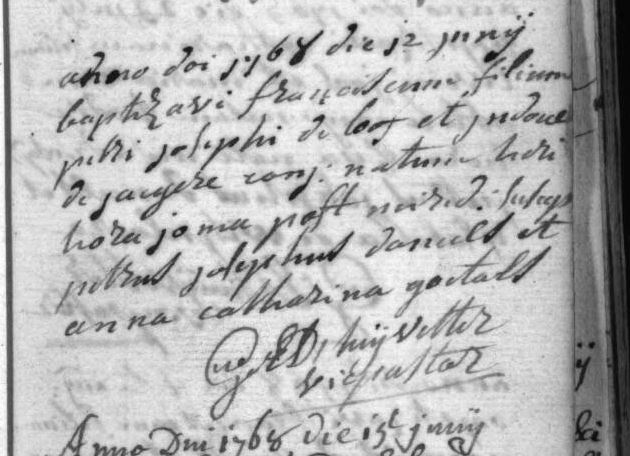 anno doi 1768 die 12 junij
baptizavi franciscum filium
petri josephi de bos et judoca
de jaegere conj: natum heri
hora 10ma post merid: suscep
petrus josephus daniels et
anna catharina goetals
vicpastor
Anno Dni 1768 die 15 junij